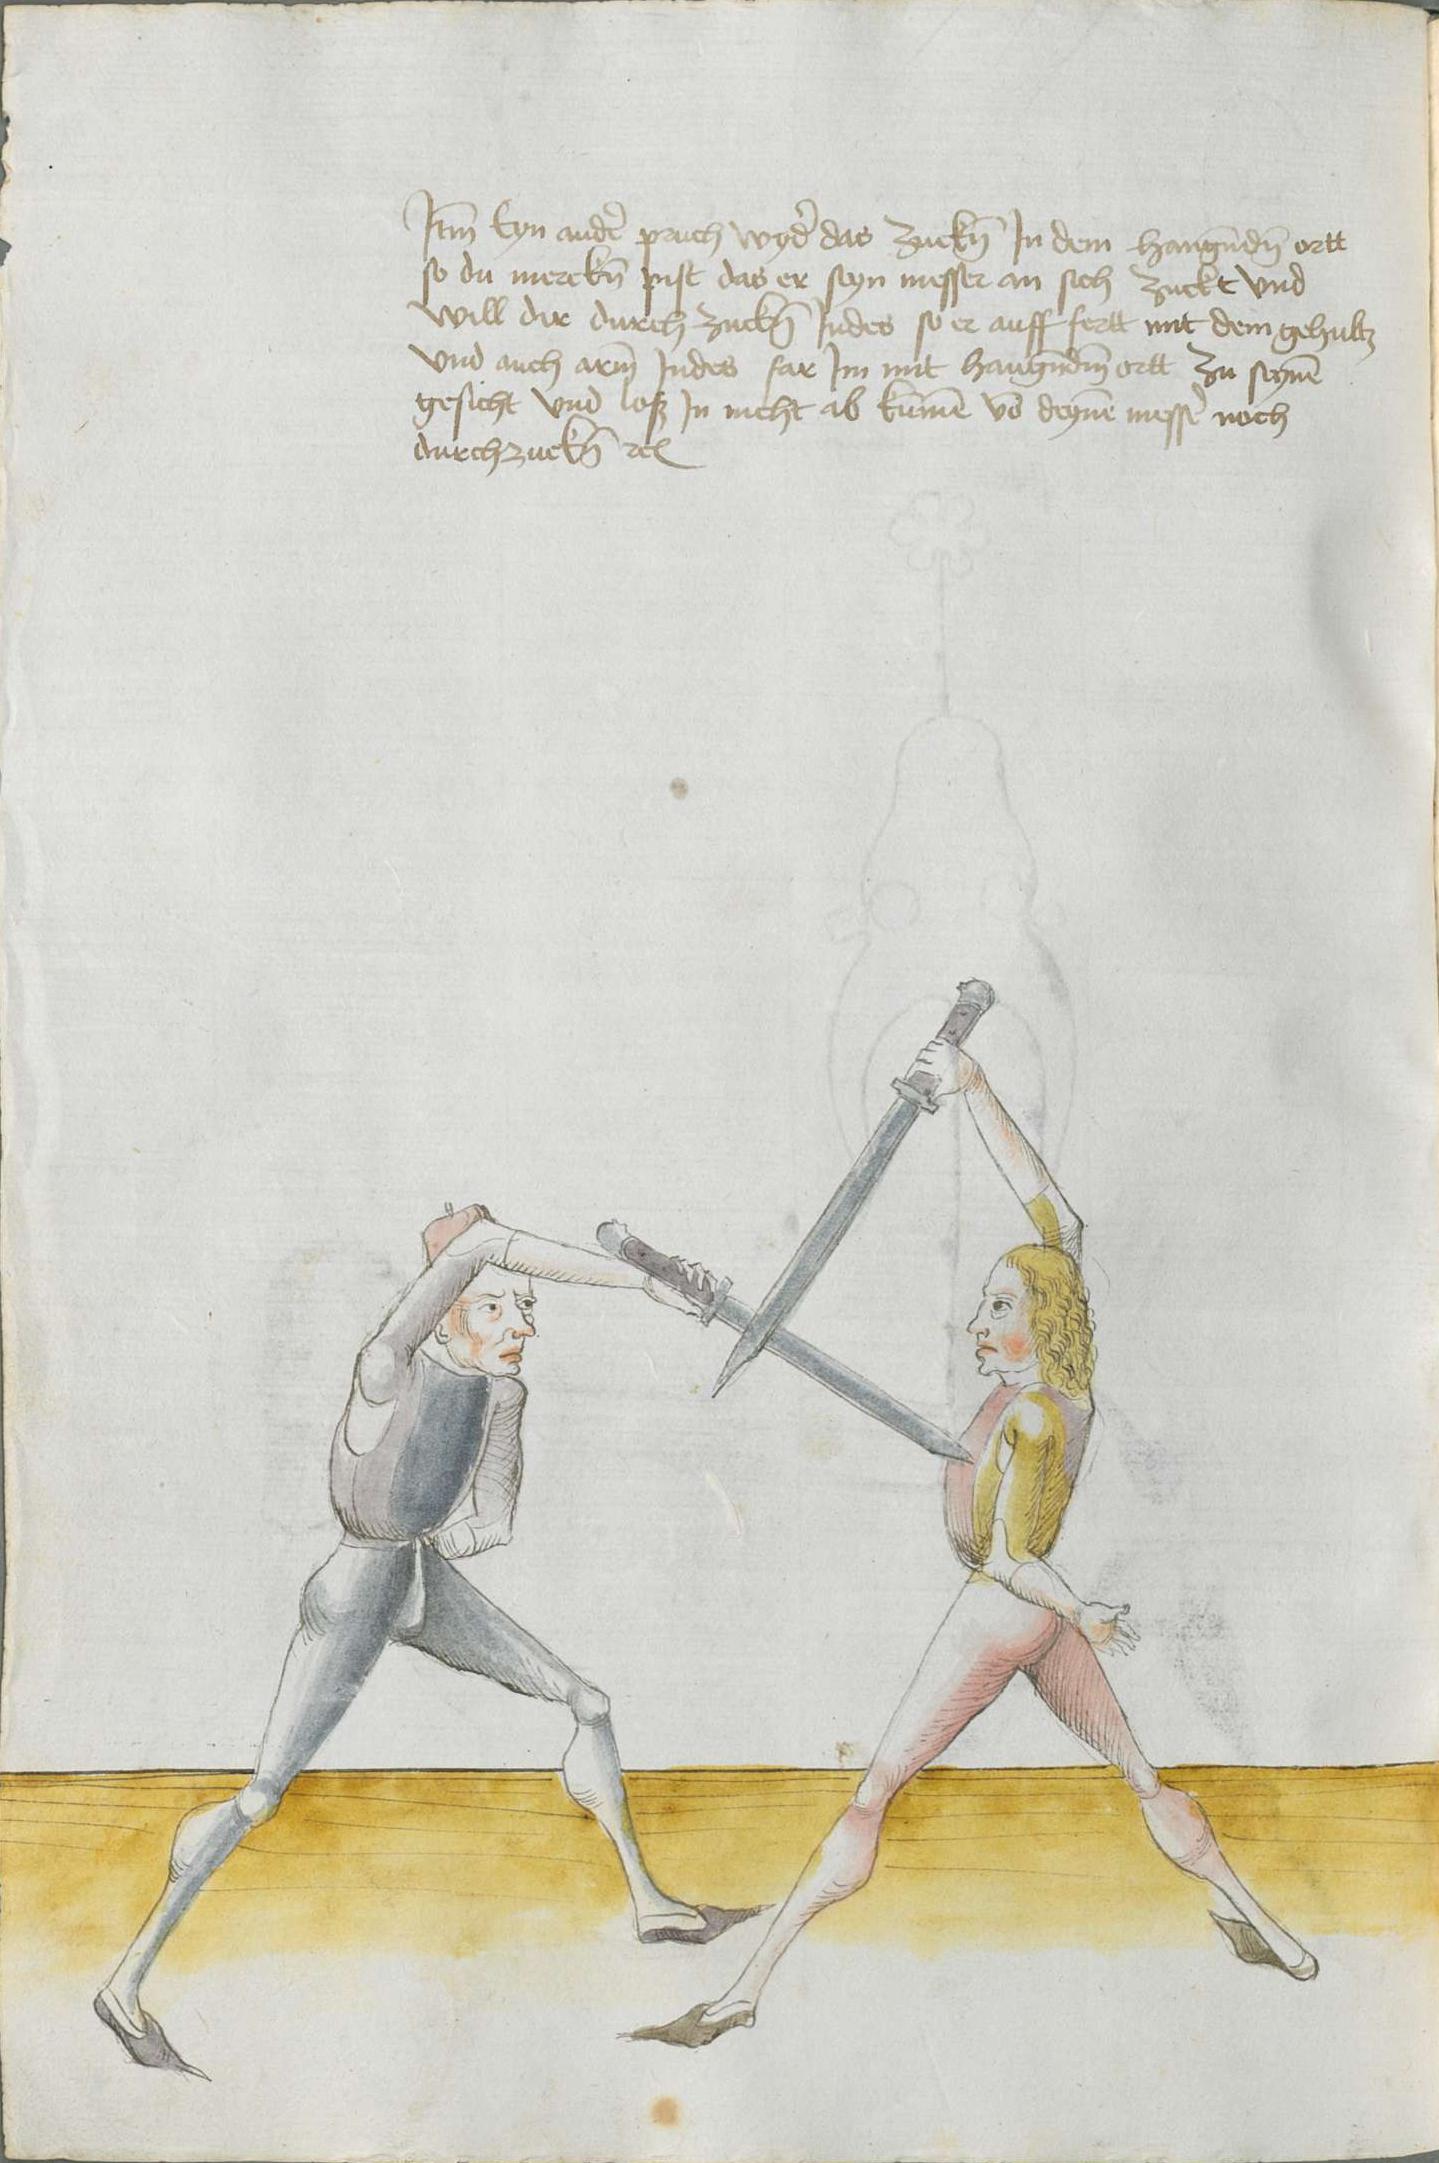 Itm Eyn ander̄ pruch wyd̄ das zuckn̄ In dem hangn̄dn̄ ortt
so du merckn̄ pist das er seyn messer an sich zuckt vnd
will dir durch zuckn̄ Indes so er auff fertt mit dem gehultz
vnd auch arm̄ Indes far Im mit hangn̄dm̄ ortt zu seynē
gesicht vnd loß In nicht ab kūmē vō deynē messer̄ noch
durchzuckn̄ rc